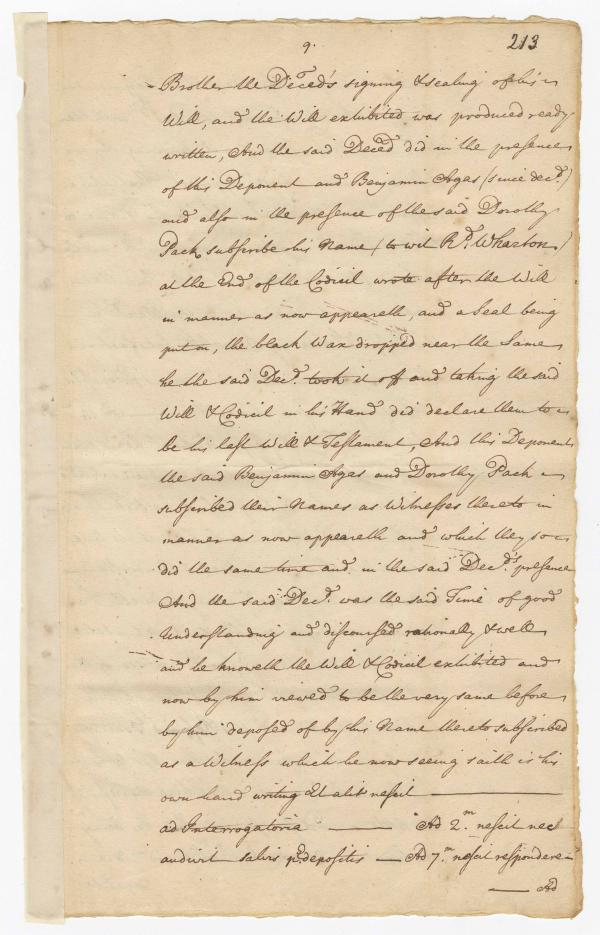 9.
213
Brother the Deced's signing & sealing of his
Will, and the Will exhibited was produced ready
written, And the said Deced did in the presence
of this Deponent and Benjamin Agas (since decd.)
and also in the presence of the said Dorothy
Pack subscribe his Name (to wit Rd. Wharton)
at the End of the Codicil wrote after the Will
in manner as now appeareth, and a Seal being
put on, the black Wax dropped near the Same
he the said Decd. took it off and taking the said
Will & Codicil in his Hand did declare them to
be his last Will & Testament, And this Deponent
the said Benjamin Agas and Dorothy Pack
subscribed their Names as Witnesses thereto in
manner as now appeareth and which they so
did the same time and in the said Decd's. presence
And the said Decd. was the said Time of good
Understanding and discoursed rationally & well
and he knoweth the Will & Codicil exhibited and
now by him viewed to be the very same before
by him deposed of by his Name thereto subscribed
as a Witness which he now seeing saith is his
own hand writing Et alit nescit
ad Interrogatoria — Ad 2.m nescit nec
audivit salvis pr.depositis — Ad 7.m nescit respondere
— Ad